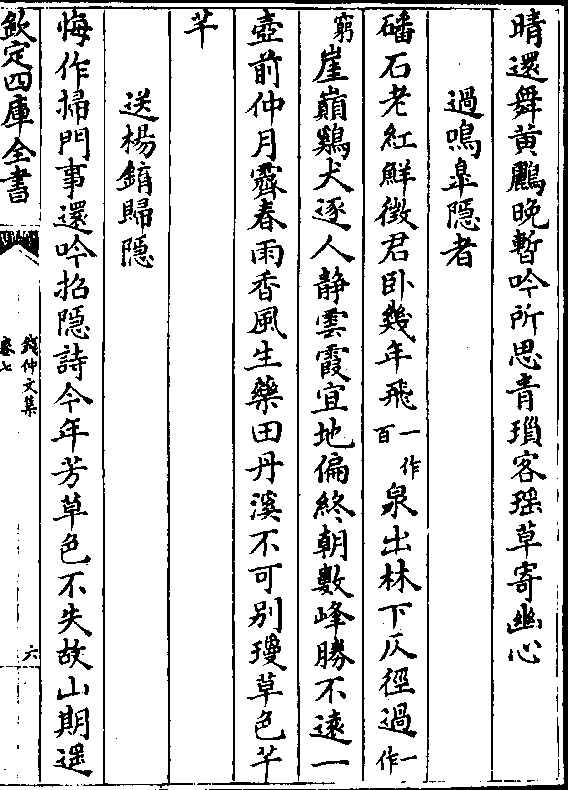 晴還舞黄鸝晚暫吟所思青瑣客瑶草寄幽心
過鳴臯隠者
磻石老紅鮮徴君卧幾年飛一作百泉出林下仄徑過一作
窮崖巔鷄犬逐人静雲霞宜地偏終朝數峰勝不遠一
壺前仲月霽春雨香風生藥田丹溪不可别瓊草色芊
芊
送楊錥歸隠
悔作掃門事還吟招隠詩今年芳草色不失故山期遥
欽定四庫全書
錢仲文集
卷七
六